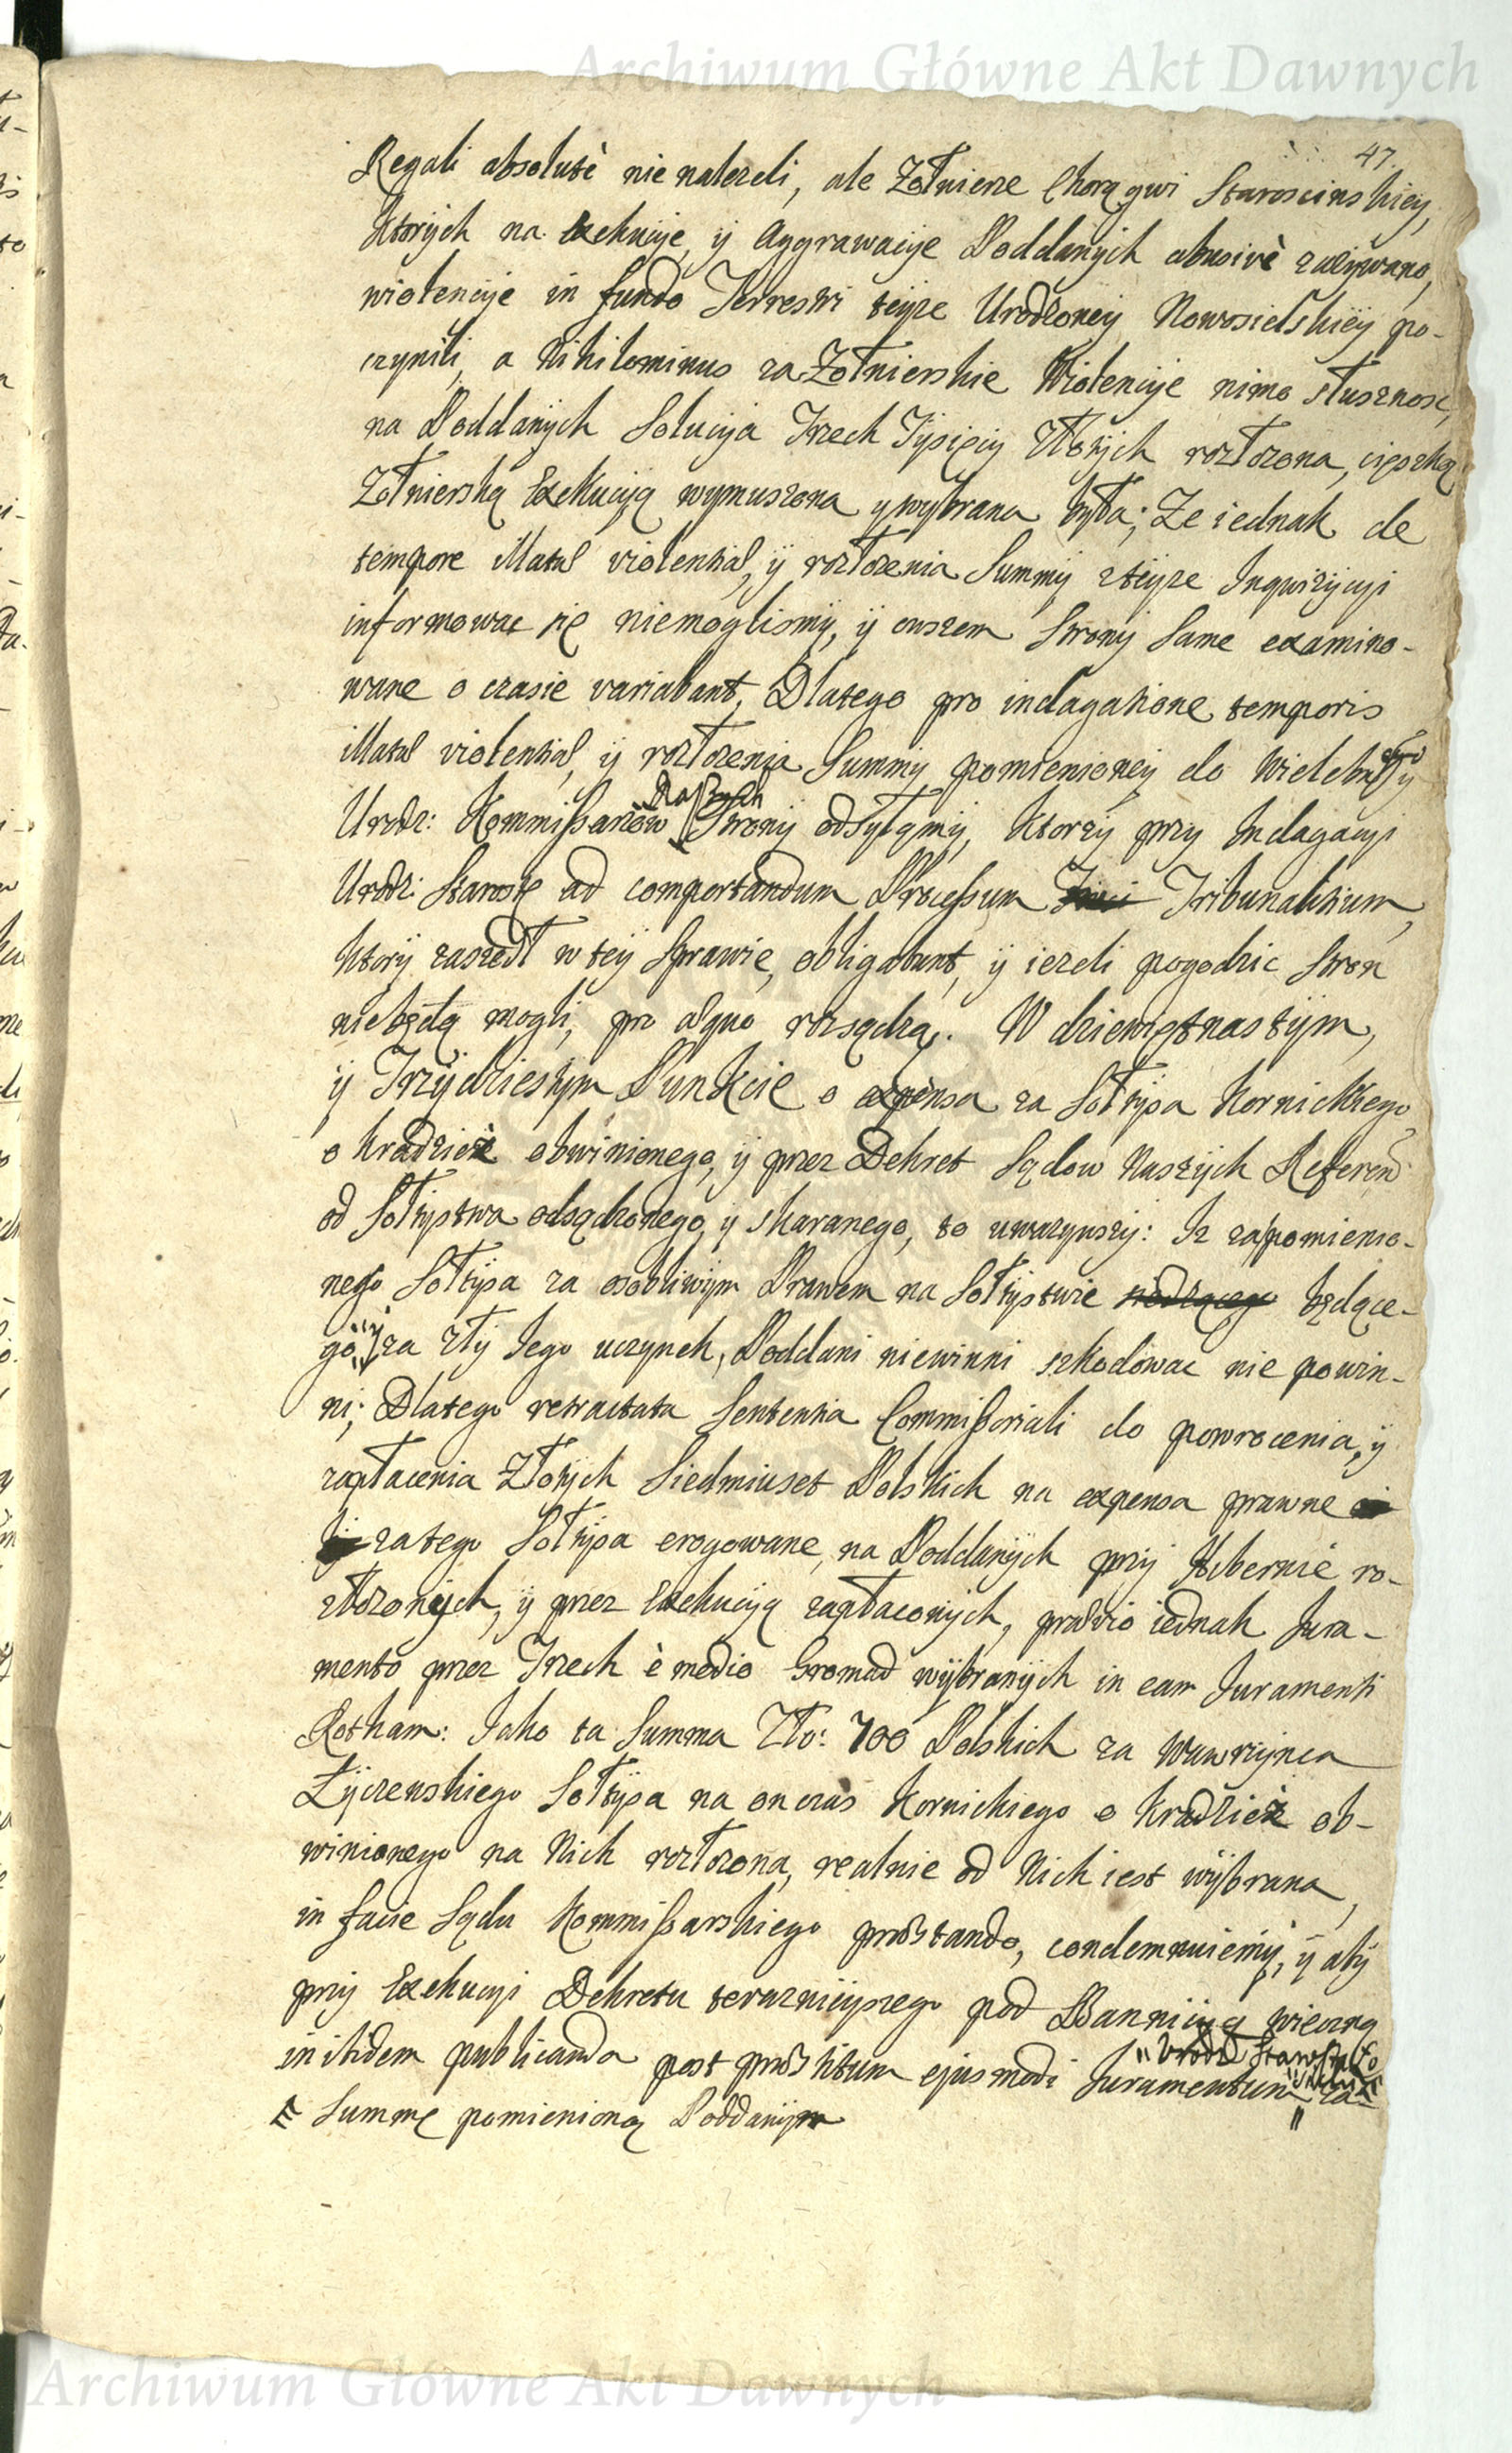 Archiwum Główne Akt Dawnych
47.
Regali absolutè nie nalezeli, ale Zołnierze Chorągwi Starościnskiey,
ktorÿch na Exekucÿe, ÿ Aggrawacÿe Poddanÿch abusivè zazÿwano,
wiolencÿe in fundo Terrestri teÿze Urodzoney Nowosielskiey po-
czynili, a Nihilominus za Zołnierskie Wiolencÿe mimo słusznosc,
na Poddanÿch Solucÿa Trzech Tÿsięcÿ Złotÿch rozłozona, cięszką
Zołnierską Exekucÿą wymuszona y wÿbrana bÿła; Ze iednak de
tempore illatæ violentiæ, ÿ rozłozenia Summÿ zteÿze Inqwizÿcÿi
informowac się niemoglismÿ, ÿ owszem Stronÿ Same examino-
wane o czasie variabant, Dlatego pro indagatione temporis
illatæ violentiæ, ÿ rozłozenia Summÿ pomienioneÿ do Wielebnego ÿ
Urodz: Kommissarzow Naszych Stronÿ odsyłamÿ, Ktorzÿ przy Indagacÿi
Urodz: Starostę ad comportandum Processum Tribunalitium,
ktorÿ zaszedł w teÿ Sprawie, obligabunt, ÿ iezeli pogodzic Stron
niebędą mogli, pro æquo rozsądzą. W dziewiętnastÿm,
ÿ Trzÿdziestym Punkcie o expensa za Sołtÿsa Kornickiego,
o kradziez obwinionego, ÿ przez Dekret Sądow Naszÿch Referen:
od Sołtÿstwa odsądzonego, ÿ skaranego, to uwazywszÿ: Iz zapomienio-
nego Sołtÿsa za osobliwÿm Prawem na Sołtÿstwie siedzącego będące-
go, ÿ za złÿ Iego uczynek, Poddani niewinni szkodowac nie powin-
ni; Dlatego retractata Sententia Commissoriali do powrocenia, ÿ
zapłacenia Złotÿch Siedmiuset Polskich na expensa prawne
za tego Sołtÿsa erogowane, na Poddanÿch przÿ Hibernie ro-
złozonÿch, ÿ przez Exekucÿą zapłaconÿch, prævio iednak Jura-
mento przez Trzech è medio Gromad wÿbranÿch in eam Juramenti
Rotham: Jako ta Summa Zło: 700 Polskich za Wawrzÿnca
Łÿczenskiego Sołtÿsa na on czas Kornickiego o kradziez ob-
winionego na Nich rozłozona, realnie od Nich iest wÿbrana,
in facie Sądu Kommissarskiego præstando, condemnuiemÿ, ÿ abÿ
przÿ Exekucÿi Dekretu teraznieÿszego pod Bannicÿą wieczną
inibidem publicanda post præstitum ejusmodi Juramentum Urodz Starosta
Summę pomienioną Poddanÿm
Archiwum Główne Akt Dawnych